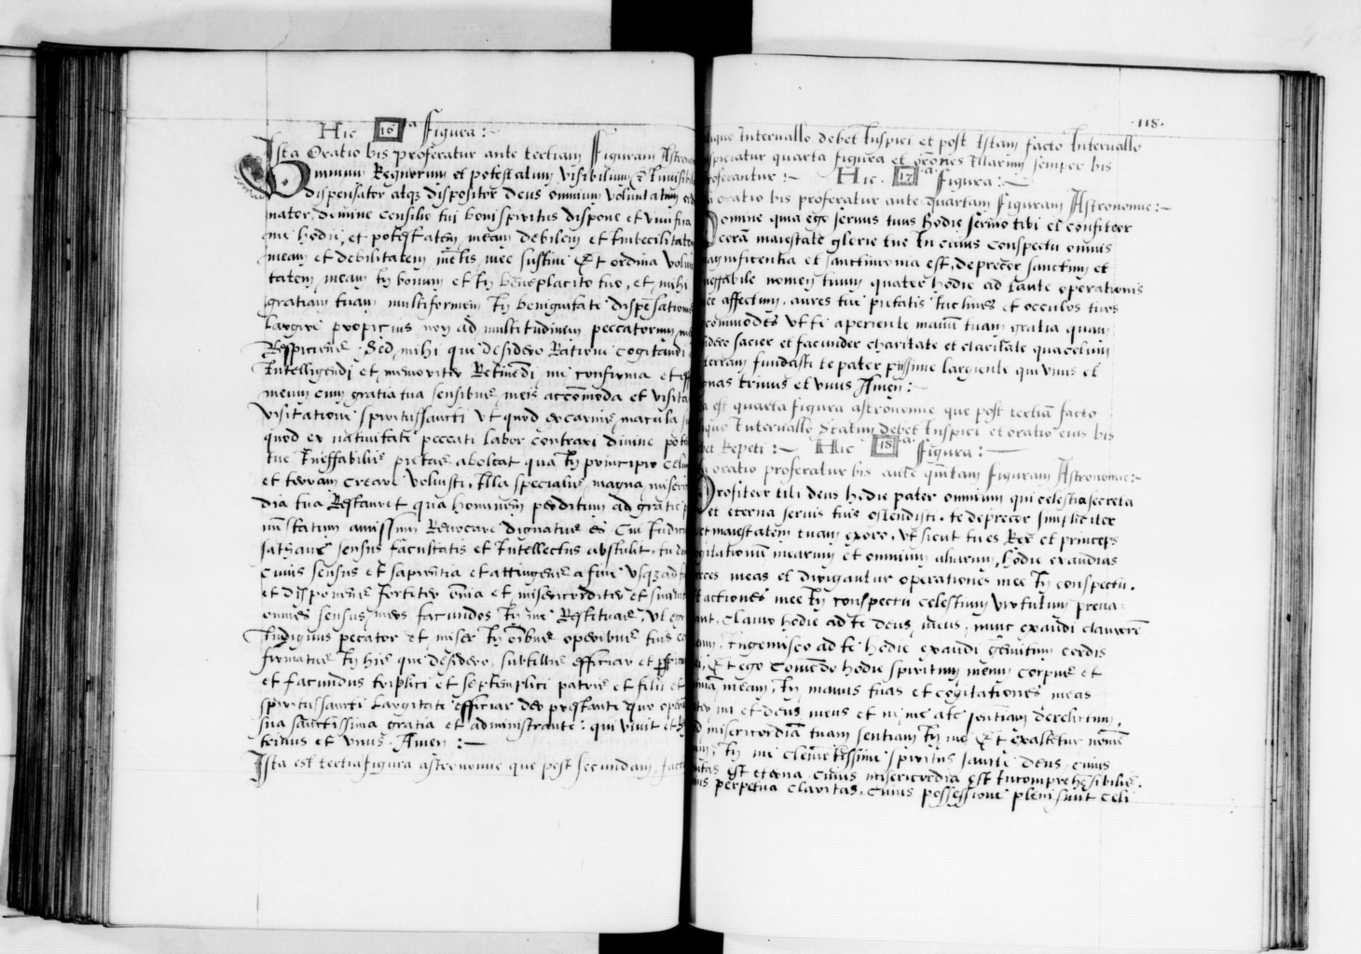 Hic 16ª figura:-
Ista Oratio bis proferatur ante tertiam figuram Astrono
Omnium Regnorum et potestatum visibilium et Invisibi
dispensator atque dispositor deus omnium voluntatum ord
nator, domine consilio tui boni spiritus dispone et vivifica
me hodie, et potestatem meam debilem et Imbecilitatem
meam et debilitatem mentis mee suffini Et ordina volun
tatem meam In bonum et In beneplacito tuo, et mihi
gratiam tuam multiformem In benignitate dispēsationis
Largire propicius non ad multitudinem peccatorum
Respiciens. Sed mihi que desidero Ratione cogitandi
Intelligendi et memoriter Retinēdi, me confirma et
meum cum gratia tua sensibus meis accōmoda et visita
visitatione spiritussancti vt quod ex carnis macula
quod ex nativitate peccati labor contraxi divine pote
tue Ineffabilis pietas aboleat qua In principio celum
et terram creare voluisti. Illa specialis magna miseri
dia tua Restauret qua hominem perditum ad gratie
statum amissum Revocare dignatus es Cui Iudici
sathane sensus facultatis et Intellectus abstulit
cuius sensus et sapientia et attingens a fine vsque ad
et disponens fortiter omnia et misericorditer et
omnes sensus meos facundos In me Restituas, vt ego
Indignus peccator et miser In omnibus operibus tuis
firmatus In his que desidero, subtillis efficiar et
et facundus triplici et septemplici patris et filii et
spiritussancti largitate efficiar deo prestante quo
sua sanctissima gratia et administrante: qui vivit et
trinus et vnus. Amen:-
Ista est tertia figura astronomie que post secundam, facto
118.
Intervallo debet Inspici et post Istam facto Intervallo
quarta figura et orōnes Illarum semper bis
proferantur:- Hic. 17ª figura:-
oratio bis proferatur ante quartam figuram Astronomie:-
Domine quia ego servus tuus hodie servio tibi et confiteor
coram maiestate glorie tue In cuius conspectu omnis
magnificentia et sanctimonia est, deprecor sanctum et
ineffabile nomen tuum quatenus hodie ad tante operationis
affectum, aures tue pietatis Inclines et occulos tuos
commodes vt te aperiente manū tuam gratia quam
desidero sacier et facunder charitate et claritate qua celum
terram fundasti te pater piissime largiente qui vivis et
regnas trinus et vnus Amen:-
est quarta figura astronomie que post tertiā facto
Intervallo statim debet Inspici et oratio eius bis
Repeti:- Hic 18ª figura:-
oratio proferatur bis ante quintam figuram Astronomie:-
Profiteor tibi deus hodie pater omnium qui celestia secreta
et eterna servis tuis ostendisti. te deprecor simpliciter
et maiestatem tuam exoro, vt sicut tu es Rex et princeps
cogitationū mearum et omnium aliarum, hodie exaudias
preces meas et dirigantur operationes mee In conspectu.
et actiones mee In conspectu celestium virtutum preva
. Clamo hodie ad te deus meus, nunc exaudi clamorē
meum. Ingemisco ad te hodie exaudi gemitum cordis
. Et ego comēdo hodie spiritum meum corpus et
animā meam, In manus tuas et cogitationes meas
mi et deus meus et ne me a te sentiam derelictum.
misericordiā tuam sentiam In me Et exaltetur nomē
tuum, In me clementissime spiritus sancte deus, cuius
bonitas est eterna cuius misericordia est Incomprehesibilis.
perpetua claritas. cuius possessione pleni sunt celi